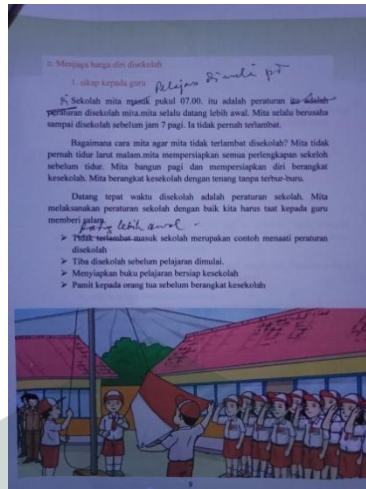 c. Menjaga harga diri disekolah
1. sikap kepada guru Pelajaran di mulai
Sekolah mita masuk pukul 07.00. itu adalah peraturan itu adalah
peraturan disekolah mita.mita selalu datang lebih awal. Mita selalu berusaha
sampai disekolah sebelum jam 7 pagi. Ia tidak pernah terlambat.
Bagaimana cara mita agar mita tidak terlambat disekolah? Mita tidak
pernah tidur larut malam.mita mempersiapkan semua perlengkapan sekeloh
sebelum tidur. Mita bangun pagi dan mempersiapkan diri berangkat
kesekolah. Mita berangkat kesekolah dengan tenang tanpa terbur-buru.
Datang tepat waktu disekolah adalah peraturan sekolah. Mita
melaksanakan peraturan sekolah dengan baik kita harus taat kepada guru
memberi salam.
datang lebih awal
➢ Tidak terlambat masuk sekolah merupakan contoh menaati peraturan
disekolah
➢ Tiba disekolah sebelum pelajaran dimulai.
➢ Menyiapkan buku pelajaran bersiap kesekolah
➢ Pamit kepada orang tua sebelum berangkat kesekolah
9